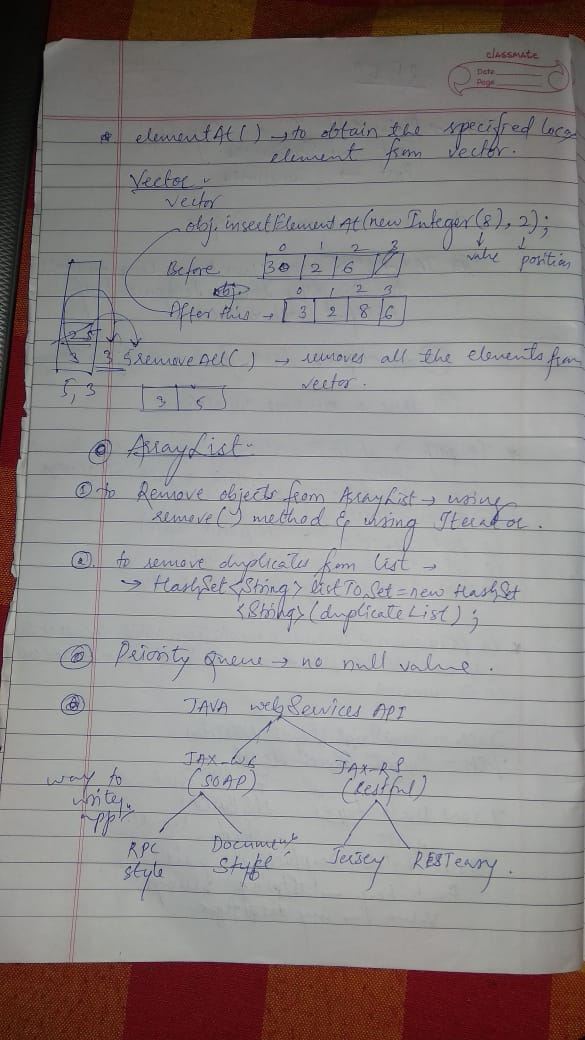 classmate
Date
Page
* elementAt() → to obtain the specified loca
element from vector.
Vector.
vector
obj.insertElementAt(new Integer(8), 2);
value position
0 1 2 3
Before 3 2 6
obj.
0 1 2 3
After this → 3 2 8 6
2 5
3
3 5
5, 3
removeAll() → removes all the elements from
vector.
3 5
ArrayList-
① to Remove objects from ArrayList → using
remove() method & using Iterator.
② to remove duplicates from list →
→ HashSet<String> listToSet = new HashSet
<String>(duplicateList);
Priority Queue → no null value.
JAVA webServices API
JAX-WS JAX-RS
(SOAP) (Restful)
way to
write
app
RPC style
Document style
Jersey
RESTeasy.